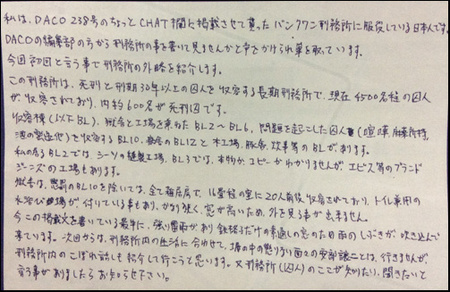 私は、DACO 238号のちょっとCHAT欄に掲載させて貰ったバンクワン刑務所に服役している日本人です。
DACOの編集部の方から刑務所の事を書いて見ませんかと声をかけられ筆を取っています。
今回初回と言う事で刑務所の外略を紹介します。
この刑務所は、死刑と刑期30年以上の囚人を収容する長期刑務所で、現在4500名程の囚人
が収容されており、内約600名が死刑囚です。
収容棟(以下BL)、総合と工場を兼ねたBL2〜BL6、問題を起こした囚人(喧嘩、麻薬所持、
酒の製造他)を収容するBL10、病舎のBL12と木工場、服飾、炊事等のBLが有ります。
私の居るBL2では、シーツの縫製工場、BL3では、本物かコピーかわかりませんが、エビス等のブランド
ジーンズの工場も有ります。
獄舎は、懲罰のBL10を除いては、全て雑居房で、16畳程の室に20人前後収容されており、トイレ兼用の
水浴び場が付いている事もあり、かなり狭く、窓が高いため、外を見る事が出来ません。
今この掲載文を書いている最中に、強い雷雨が有り鉄格子だけの素通しの窓のため雨のしぶきが吹き込んで
来ています。次回からは、刑務所内の生活に合わせて、塀の中の懲りない面々の安部譲二とは、行きませんが、
刑務所内のこぼれ話しも紹介して行こうと思います。又刑務所(囚人)のここが知りたい、聞きたいと
言う事が有りましたらお知らせ下さい。